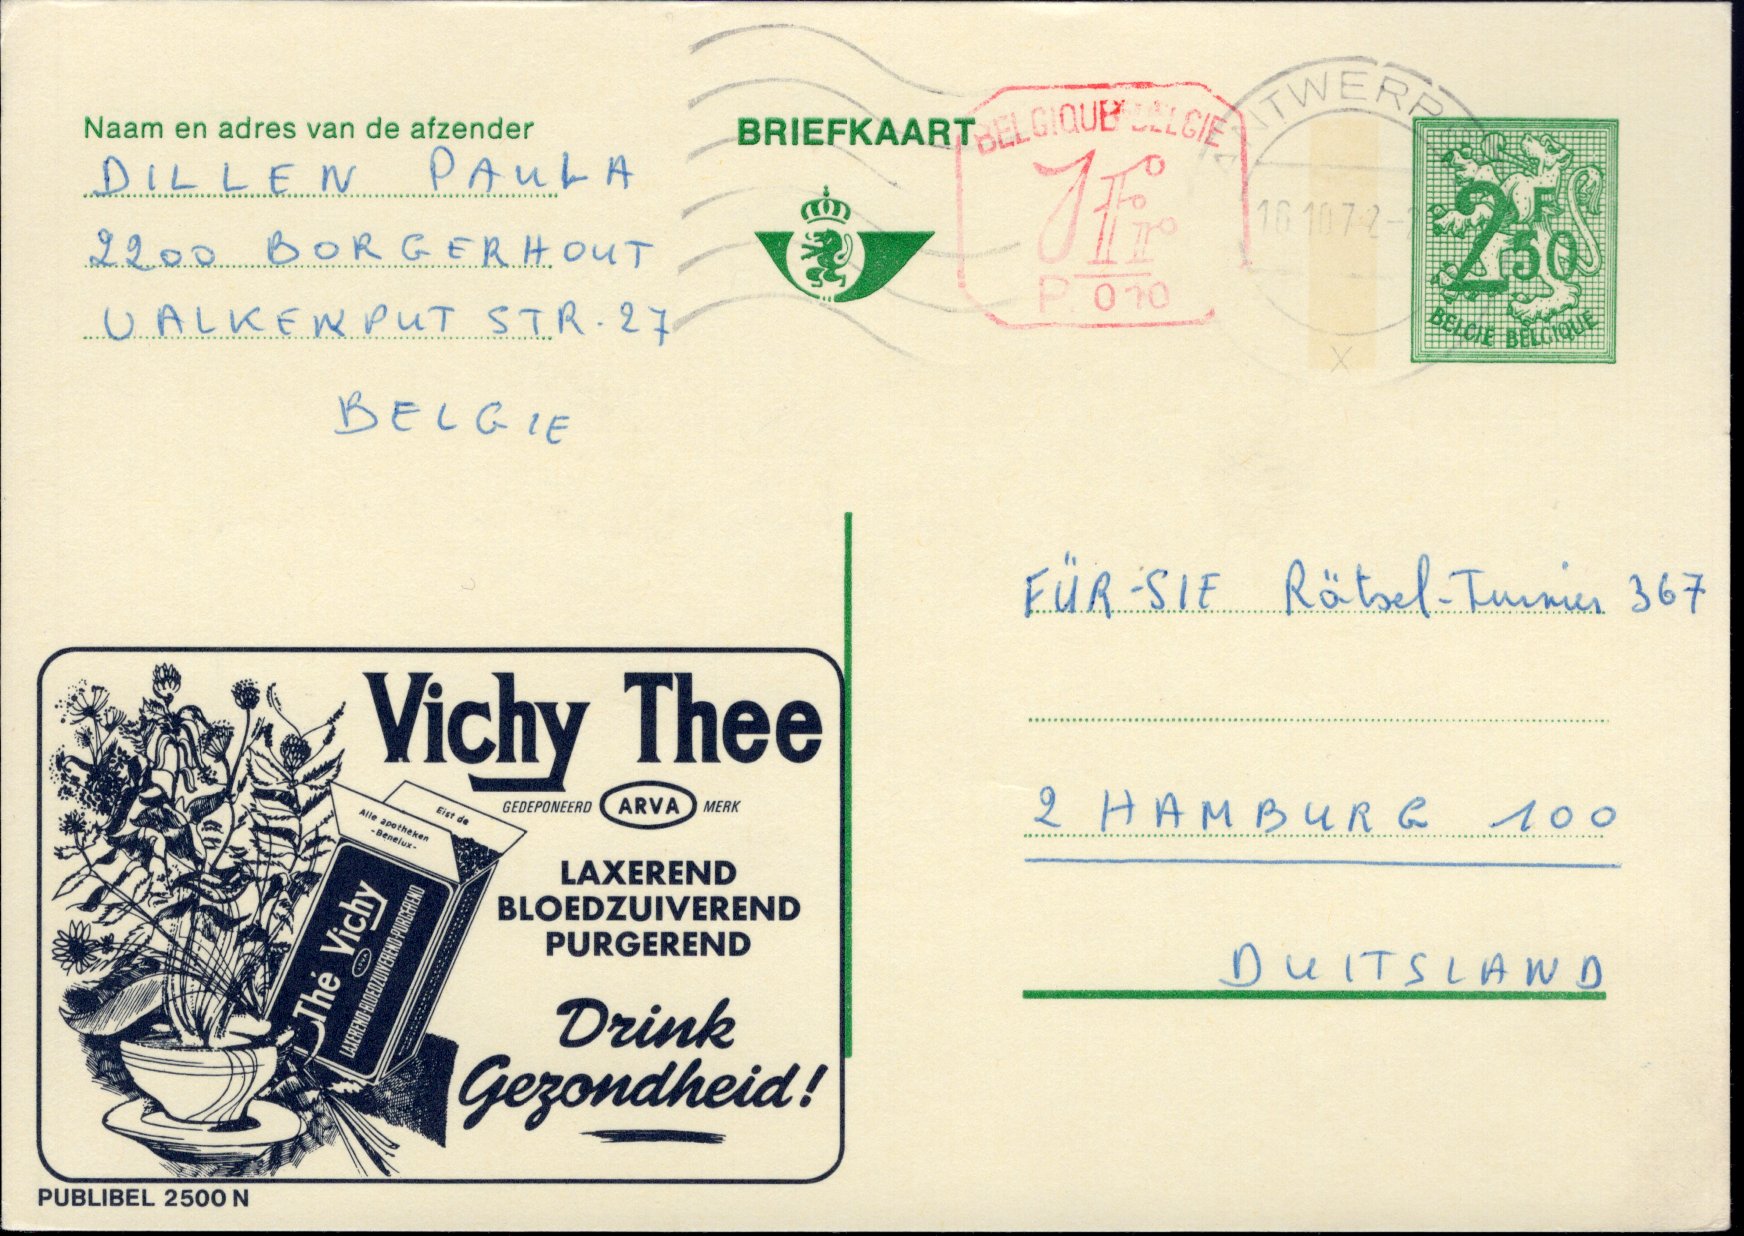 Naam en adres van de afzender
DILLEN PAULA
2200 BORGERHOUT
VALKENPUT STR. 27
BELGIE
BRIEFKAART
BELGIQUE-BELGIE
1Fr
P. 010
ANTWERP
X
2F50
BELGIE BELGIQUE
FÜR-SIE Rätsel-Turnier 367
2 HAMBURG 100
DUITSLAND
Vichy Thee
GEDEPONEERD ARVA MERK
Alle apotheken
-Benelux-
Eist de
Thé Vichy
LAXEREND-BLOEDZUIVEREND-PURGEREND
LAXEREND
BLOEDZUIVEREND
PURGEREND
Drink
Gezondheid!
PUBLIBEL 2500 N